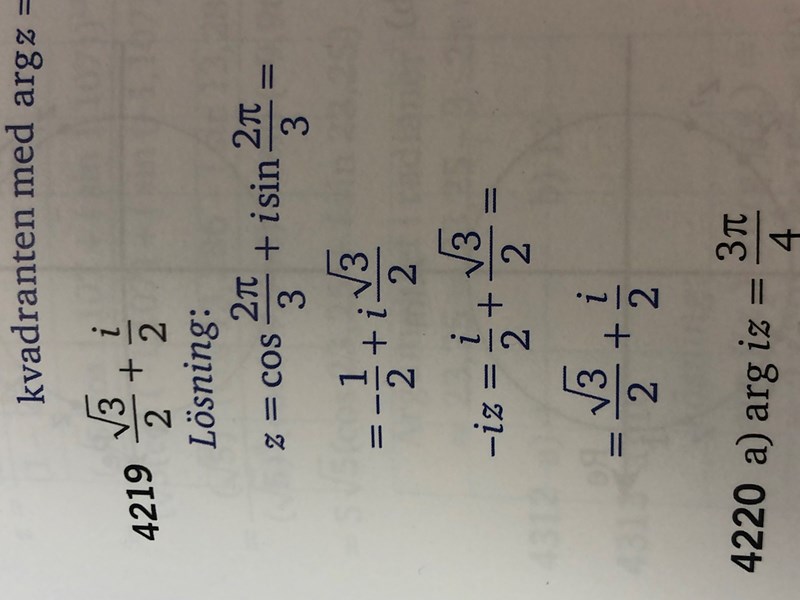 kvadranten med arg z =
4219 √3/2 + i/2
Lösning:
z = cos 2π/3 + i sin 2π/3 =
= -1/2 + i √3/2
-iz = i/2 + √3/2 =
= √3/2 + i/2
4220 a) arg iz = 3π/4